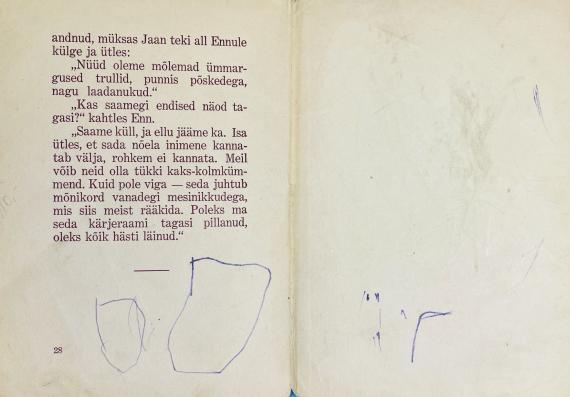 andnud, müksas Jaan teki all Ennule
külge ja ütles:
„Nüüd oleme mõlemad ümmar-
gused trullid, punnis põskedega,
nagu laadanukud.“
„Kas saamegi endised näod ta-
gasi?“ kahtles Enn.
„Saame küll, ja ellu jääme ka. Isa
ütles, et sada nõela inimene kanna-
tab välja, rohkem ei kannata. Meil
võib neid olla tükki kaks-kolmküm-
mend. Kuid pole viga — seda juhtub
mõnikord vanadegi mesinikkudega,
mis siis meist rääkida. Poleks ma
seda kärjeraami tagasi pillanud,
oleks kõik hästi läinud.“
28